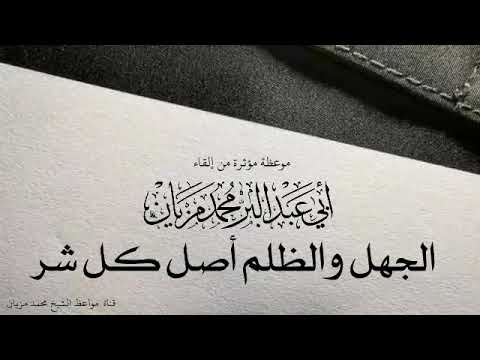 موعظة مؤثرة من إلقاء
أبي عبد البر محمد مزيان
الجهل والظلم أصل كل شر
قناة مواعظ الشيخ محمد مزيان